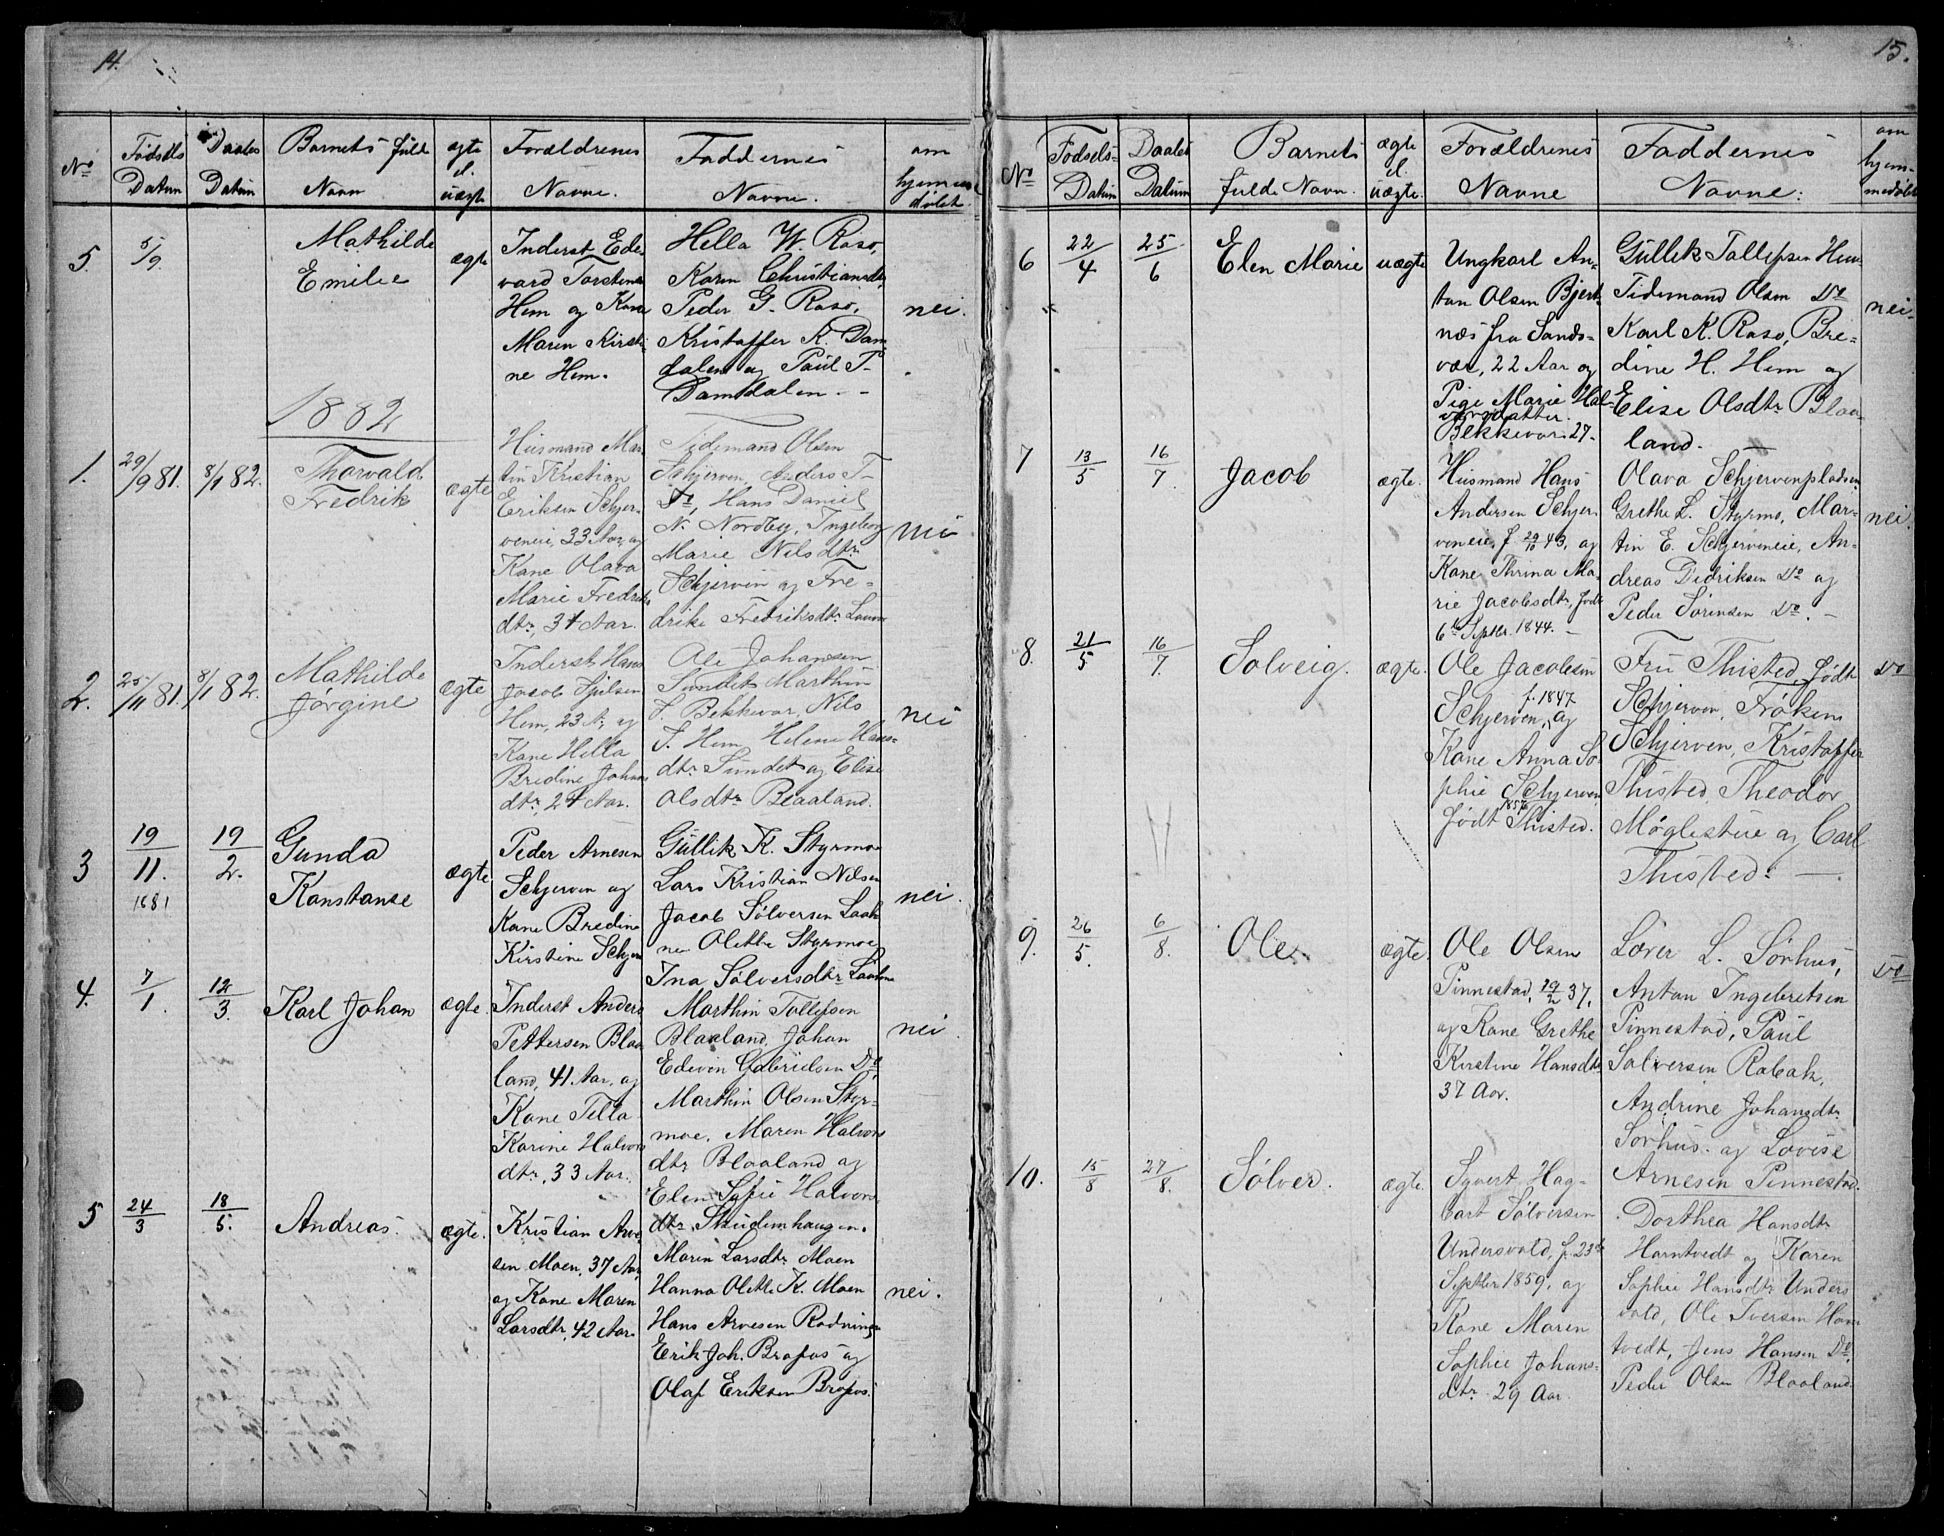 14.
No
Fødsels Datum
Daabs Datum
Barnets fulde Navn
ægte el. uægte
Forældrenes Navne.
Faddernes Navne.
om hjemmedøbt.
5.
5/9
Mathilde
Emilie
ægte
Inderst Ed-
vard Torstens
Hem og Kone
Maren Kirsti-
ne Hem.
Hella W. Raso,
Karen Christiansdtr,
Peder G. Raso,
Kristoffer K. Dam-
dalen og Paul T
Damdalen.
nei.
1882
1.
29/9 81.
8/1 82.
Thorvald
Fredrik
ægte
Husmand Mar-
tin Kristian
Eriksen Schjer-
veneie, 33 Aar, og
Kone Olava
Marie Fredriks
dtr, 34 Aar.
Tidemand Olsen
Schjerven, Anders T
Do, Hans Daniel
N. Nordby, Ingeborg
Marie Nilsdtr
Schjerven og Fre-
drike Fredriksdtr
nei
2.
25/11 81.
8/1 82.
Mathilde
Jørgine
ægte
Inderst Hans
Jacob
Hem, 23 A, og
Kone Hella
Bredine Johans
dtr, 24 Aar.
Ole Johansen
Sundet, Marthin
J. Bekkevar, Nils
J. Hem, Helene Hans-
dtr Sundet og Elise
Olsdtr Blaaland.
nei
3
19/11. 1881
19/2.
Gunda
Konstanse
ægte
Peder Arnesen
Schjerven og
Kone Bredine
Kirstine Schjer
Gullik K. Styrmoe
Lars Kristian Nilsen
Jacob Sølversen
Olette Styrmoe
Ina Sølversdtr
nei.
4.
7/1
12/3.
Karl Johan
ægte.
Inderst Anders
Pettersen Blaa-
land, 41 Aar, og
Kone Tella
Karine Halvors
dtr, 33 Aar.
Marthin Tollefsen
Blaaland, Johan
Edvin Gabrielsen Do,
Marthin Olsen Styr-
moe, Maren Halvors
dtr Blaaland og
Elen Sofie Halvors
dtr Skudemhaugen.
nei
5
24/3
18/5.
Andreas.
ægte.
Kristian Arve-
sen Moen, 37 Aar,
og Kone Maren
Larsdtr, 42 Aar.
Maren Larsdtr Moen
Hanna Olette K. Moen
Hans Arvesen Rodning
Erik Joh. Brofos og
Olaf Eriksen Brofos.
nei.
15.
No
Fødsels-Datum
Daabs Datum
Barnets fulde Navn.
ægte el. uægte.
Forældrenes Navne
Faddernes Navne:
om hjem-medøbt
6
22/4
25/6
Elen Marie
uægte
Ungkarl An-
ton Olsen Bjert-
næs fra Sands-
vær, 22 Aar og
Pige Marie Hal-
vorsdatter
Bekkevar 27.
Gullik Tollefsen Hem
Tidemand Olsen Do
Karl K. Raso, Bre-
dine H. Hem og
Elise Olsdtr Blaa-
land.
nei.
7
13/5
16/7.
Jacob
ægte.
Husmand Hans
Andersen Schjer-
veneie, f. 29/10 43, og
Kone Thrina Ma-
rie Jacobsdtr, født
6te Septbr. 1844.
Olava Schjervenpladsen
Grethe L. Styrmo, Mar-
tin E. Schjerveneie, An-
dreas Didriksen Do og
Peder Sørensen Do.
nei.
8.
21/5
16/7.
Solveig.
ægte.
Ole Jacobsen
Schjerven, f. 1847 og
Kone Anna So-
phie Schjerven
født 1856 Thisted.
Fru Thisted, født
Schjerven, Frøken
Schjerven, Kristoffer
Thisted, Theodor
Møglestue og Carl
Thisted.
Do
9.
26/5.
6/8.
Ole.
ægte.
Ole Olsen
Pinnestad, 19/2 37,
og Kone Grethe
Kirstine Hansdtr
37 Aar.
Lorer L. Sørhus,
Anton Ingebretsen
Pinnestad, Paul
Salversen Rabak,
Andrine Johansdtr
Sørhus og Lovise
Arnesen Pinnestad.
Do
10.
15/8
27/8.
Sølver.
ægte.
Syvert Hag-
bart Sølversen
Undersvald, f. 23de
Septbr 1859, og
Kone Maren
Sophie Johans-
dtr 29 Aar
Dorthea Hansdtr
Harntvedt og Karen
Sophie Hansdtr Unders
vald, Ole Iversen Harn
tvedt, Jens Hansen Do,
Peder Olsen Blaaland